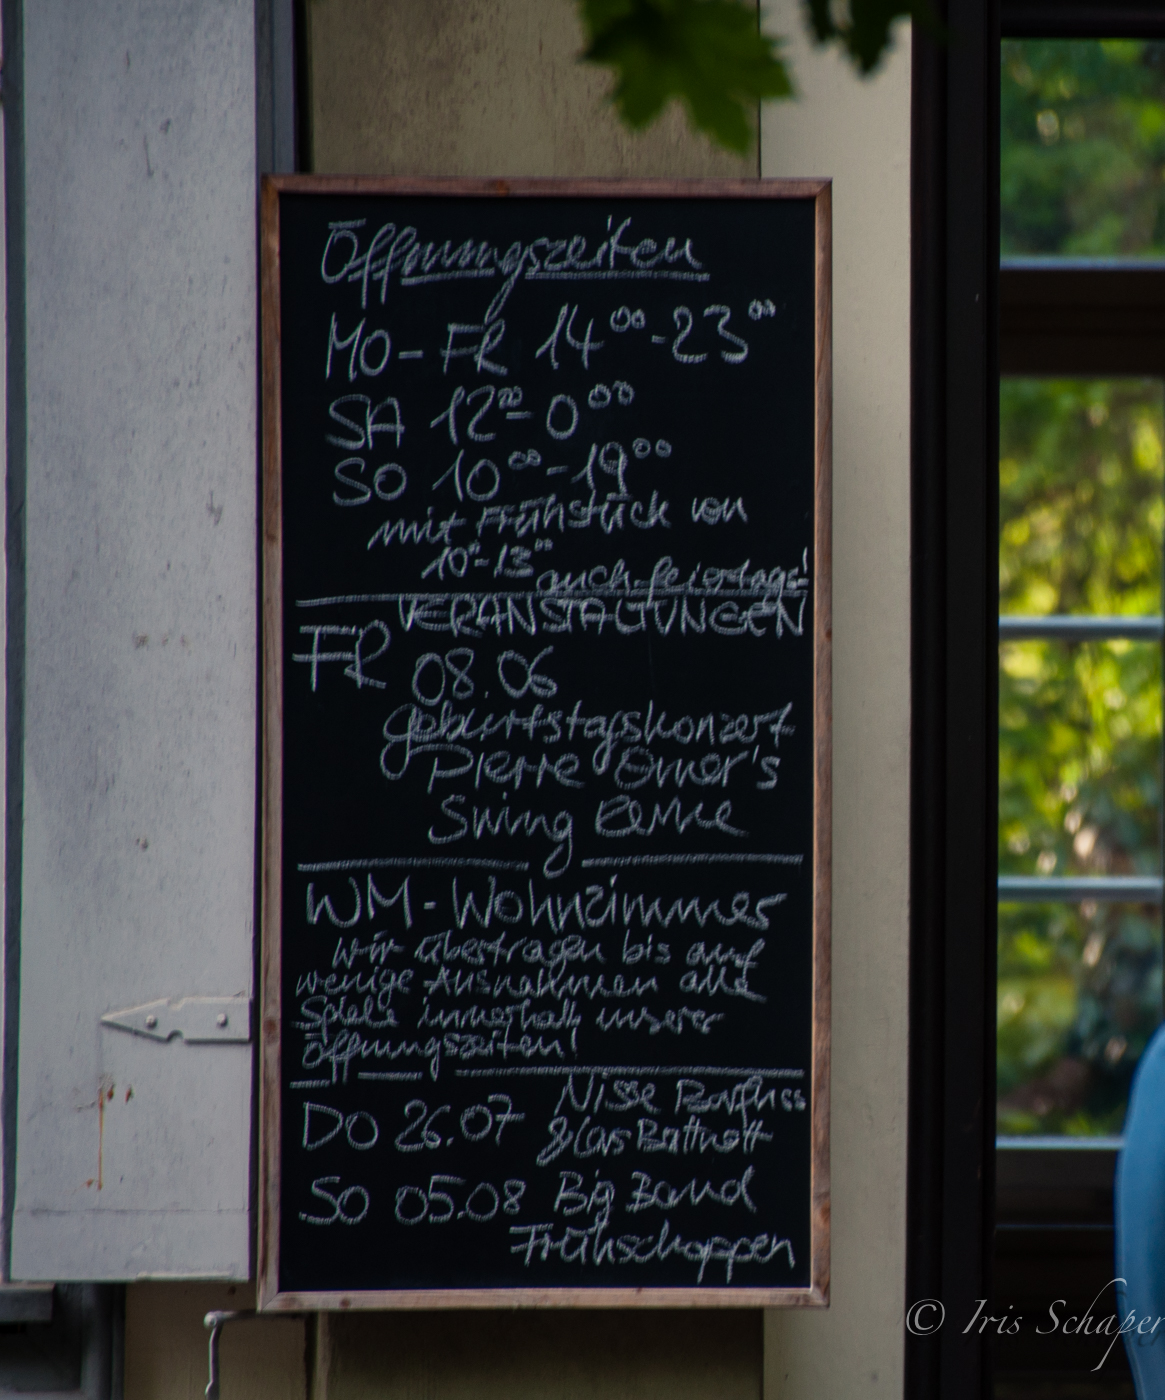 Öffnungszeiten
MO - FR 14⁰⁰ - 23⁰⁰
SA 12⁰⁰ - 0⁰⁰
SO 10⁰⁰ - 19⁰⁰
mit Frühstück von
10⁰⁰ - 13⁰⁰ auch feiertags!
VERANSTALTUNGEN
FR 08.06
Geburtstagskonzert
Pierre
Swing
WM - Wohnzimmer
wir übertragen bis auf
wenige Ausnahmen alle
Spiele innerhalb unserer
Öffnungszeiten!
Nisse
DO 26.07
SO 05.08 Big Band
Frühschoppen
© Iris Schaper